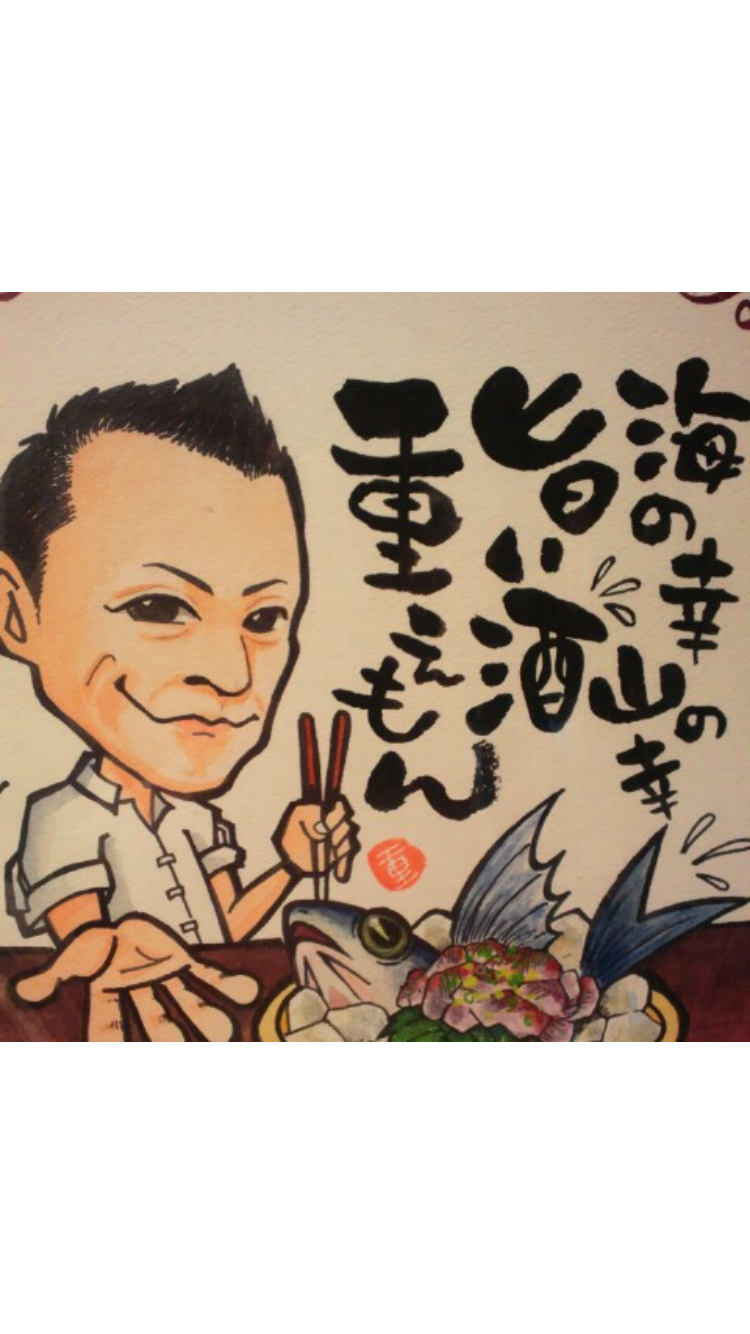 海の幸山の幸
旨い酒
重えもん
重